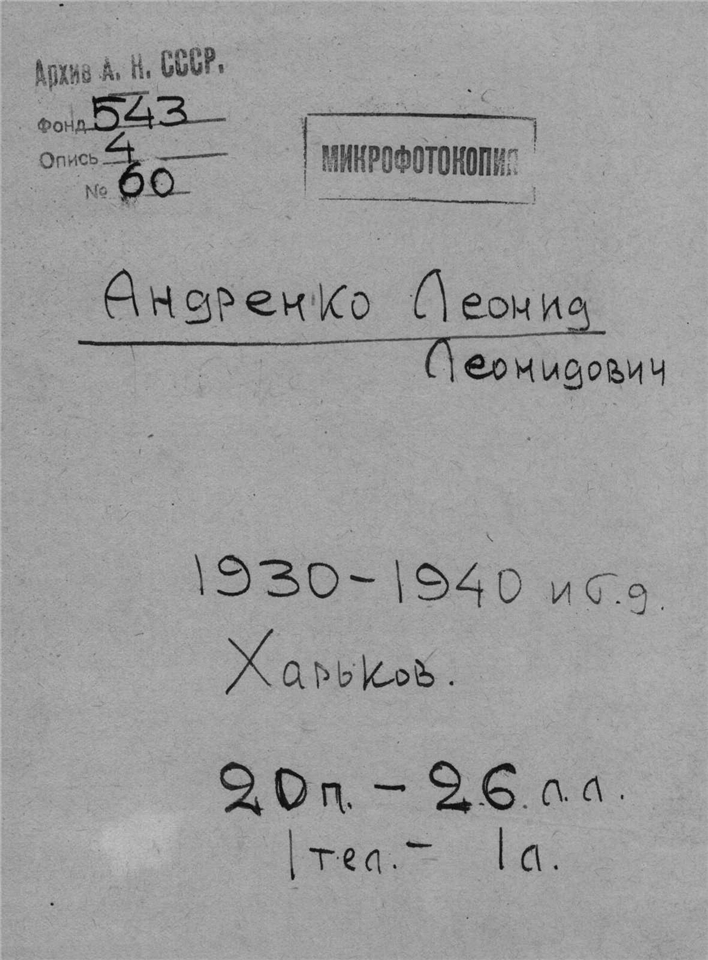 Архив А. Н. СССР.
Фонд 543
Опись 4
№ 60
МИКРОФОТОКОПИЯ
Андренко Леонид
Леонидович
1930-1940 и б.д.
Харьков.
20п. - 26 л.л.
1 тел. - 1 л.